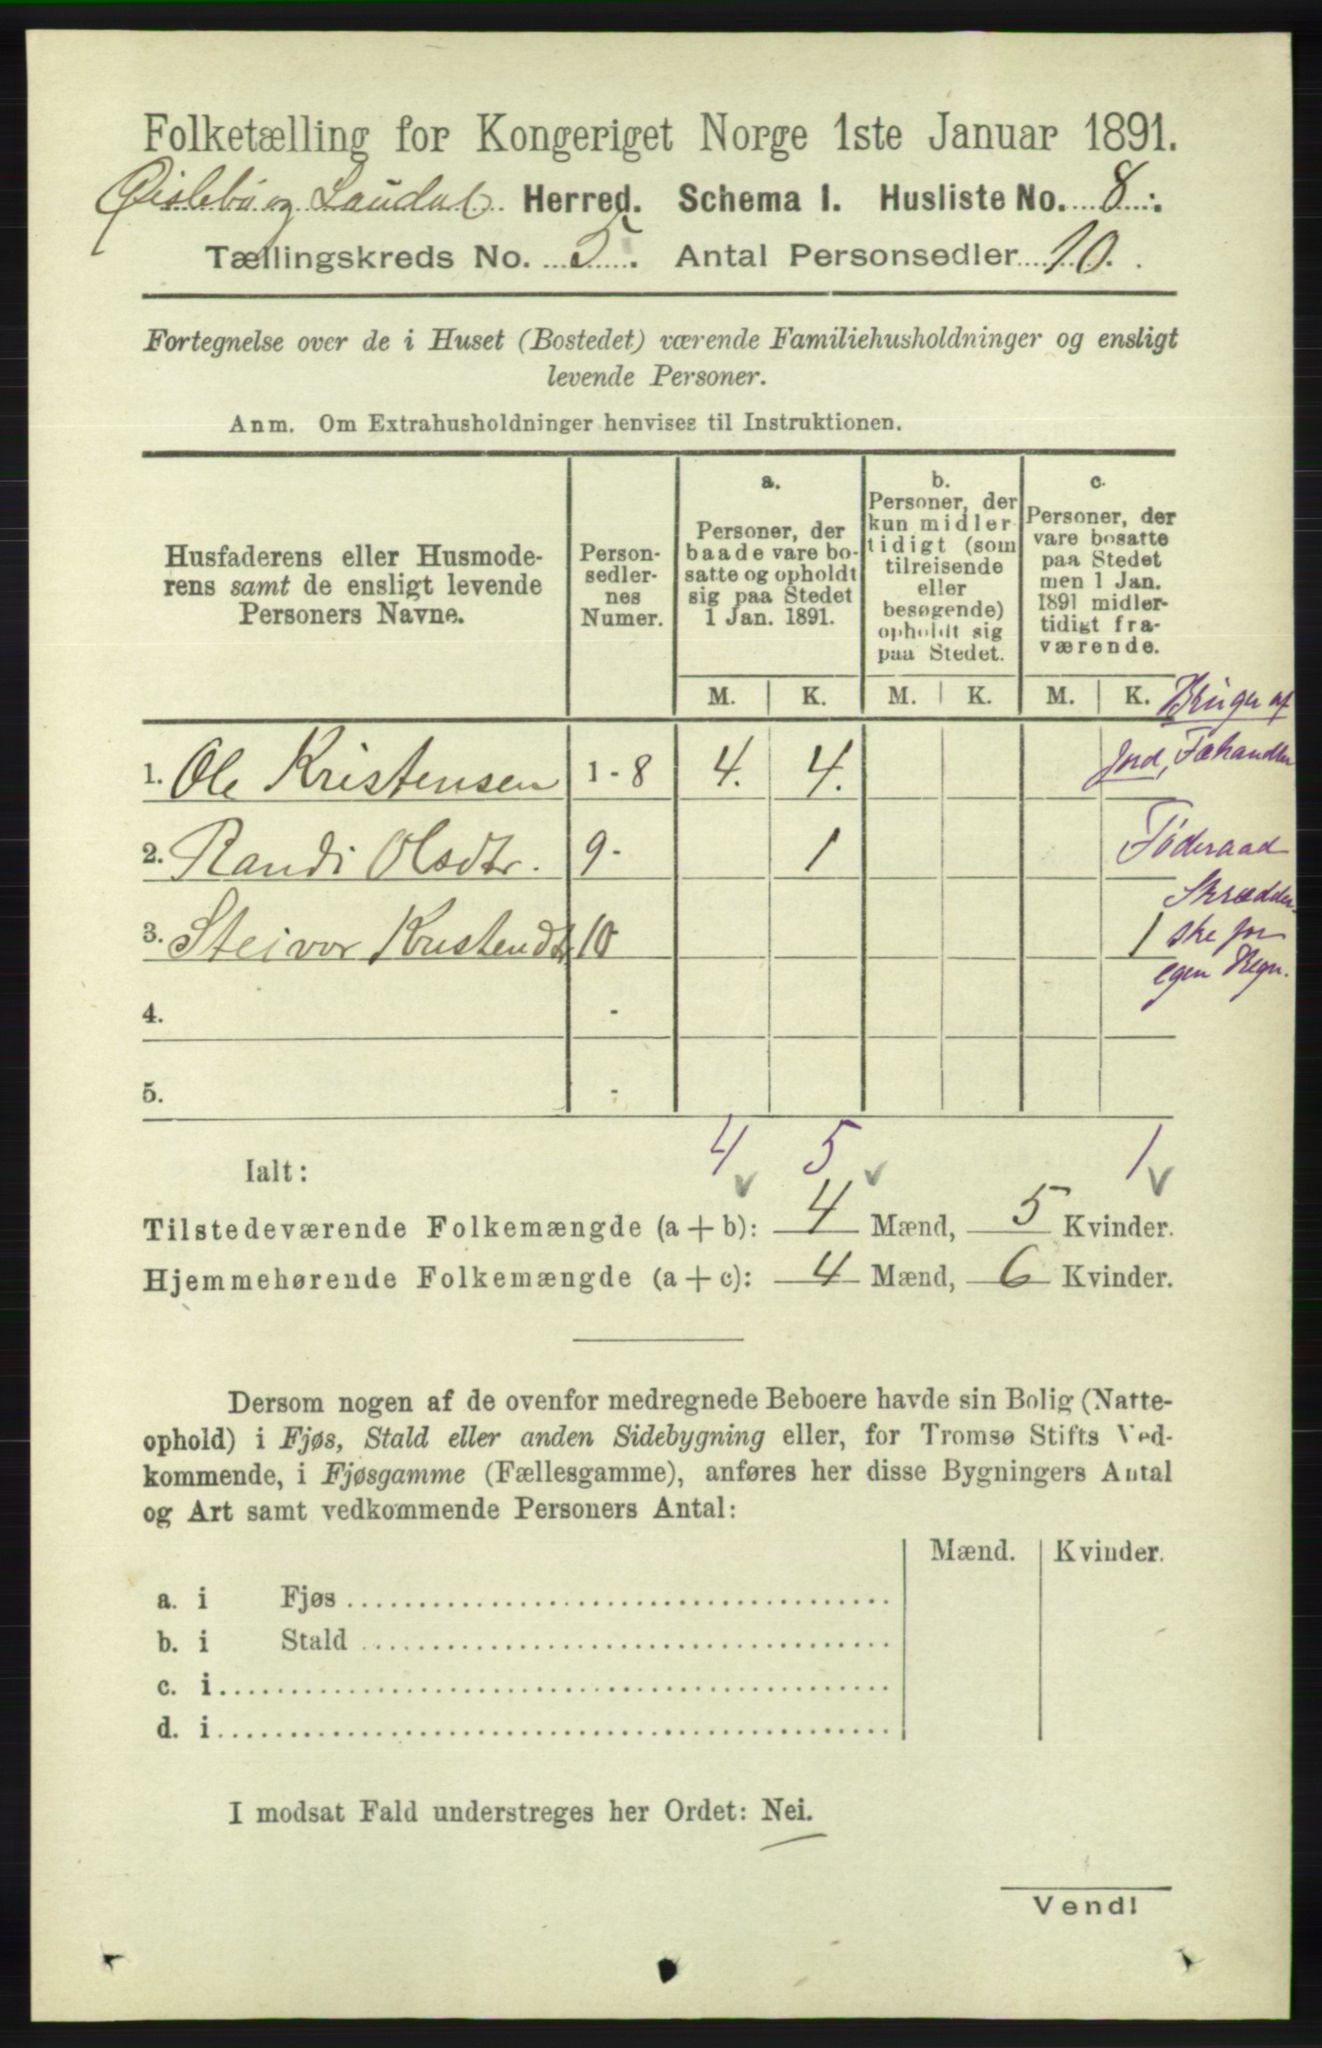 Folketælling for Kongeriget Norge 1ste Januar 1891.
Øislebø og Laudal Herred. Schema I. Husliste No. 8.
Tællingskreds No. 5. Antal Personsedler 10.
Fortegnelse over de i Huset (Bostedet) værende Familiehusholdninger og ensligt
levende Personer.
Anm. Om Extrahusholdninger henvises til Instruktionen.
Husfaderens eller Husmode-
rens samt de ensligt levende
Personers Navne.
Person-
sedler-
nes
Numer.
a.
Personer, der
baade vare bo-
satte og opholdt
sig paa Stedet
1 Jan. 1891.
b.
Personer, der
kun midler-
tidigt (som
tilreisende
eller
besøgende)
opholdt sig
paa Stedet.
c.
Personer, der
vare bosatte
paa Stedet
men 1 Jan.
1891 midler-
tidigt fra-
værende.
M. K. M. K. M. K.
Bruger af
1. Ole Kristensen 1 - 8 4. 4. Jord, Fæhandler
2. Randi Olsdtr. 9 - 1 Føderaad
Skrædder-
3. Steivor Kristendtr 10 1 ske for
egen Regn.
4. -
5. -
Ialt: 4 5 1
Tilstedeværende Folkemængde (a + b): 4 Mænd, 5 Kvinder.
Hjemmehørende Folkemængde (a + c): 4 Mænd, 6 Kvinder.
Dersom nogen af de ovenfor medregnede Beboere havde sin Bolig (Natte-
ophold) i Fjøs, Stald eller anden Sidebygning eller, for Tromsø Stifts Ved-
kommende, i Fjøsgamme (Fællesgamme), anføres her disse Bygningers Antal
og Art samt vedkommende Personers Antal:
Mænd. Kvinder.
a. i Fjøs
b. i Stald
c. i
d. i
I modsat Fald understreges her Ordet: Nei.
Vend!